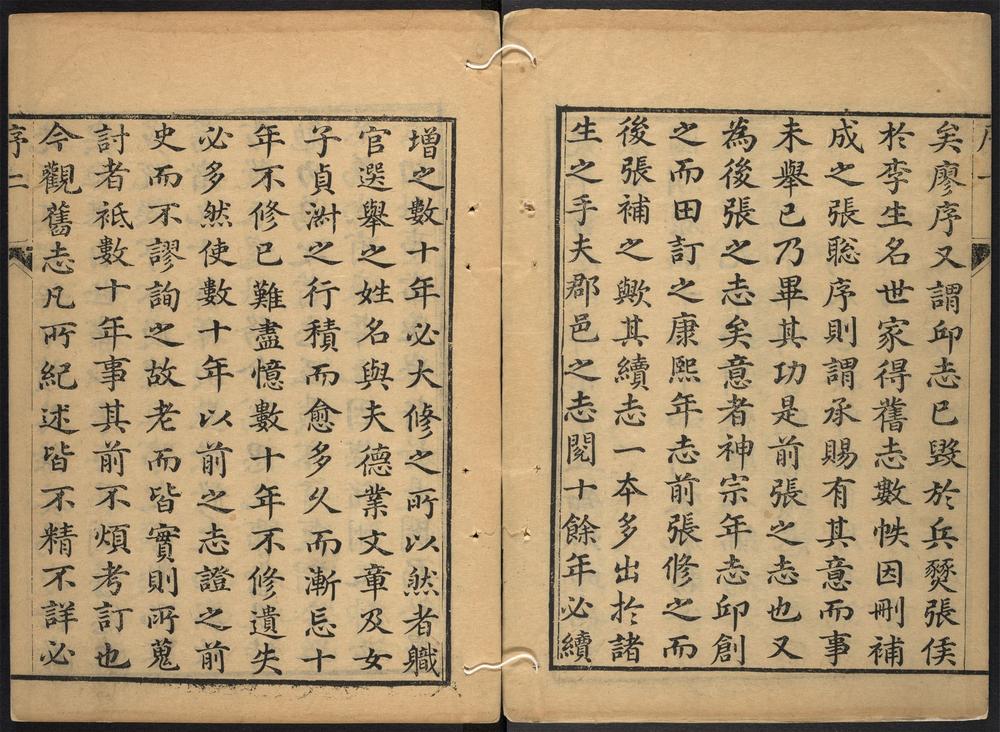 序一
矣廖序又謂邱志已毀於兵燹張侯
於李生名世家得舊志數帙因刪補
成之張聡序則謂承賜有其意而事
未舉已乃畢其功是前張之志也又
為後張之志矣意者神宗年志邱創
之而田訂之康熙年志前張修之而
後張補之歟其續志一本多出於諸
生之手夫郡邑之志閱十餘年必續
增之數十年必大修之所以然者職
官選舉之姓名與夫德業文章及女
子貞淑之行積而愈多久而漸忘十
年不修已難盡憶數十年不修遺失
必多然使數十年以前之志證之前
史而不謬詢之故老而皆實則所蒐
討者祗數十年事其前不煩考訂也
今觀舊志凡所紀述皆不精不詳必
序二